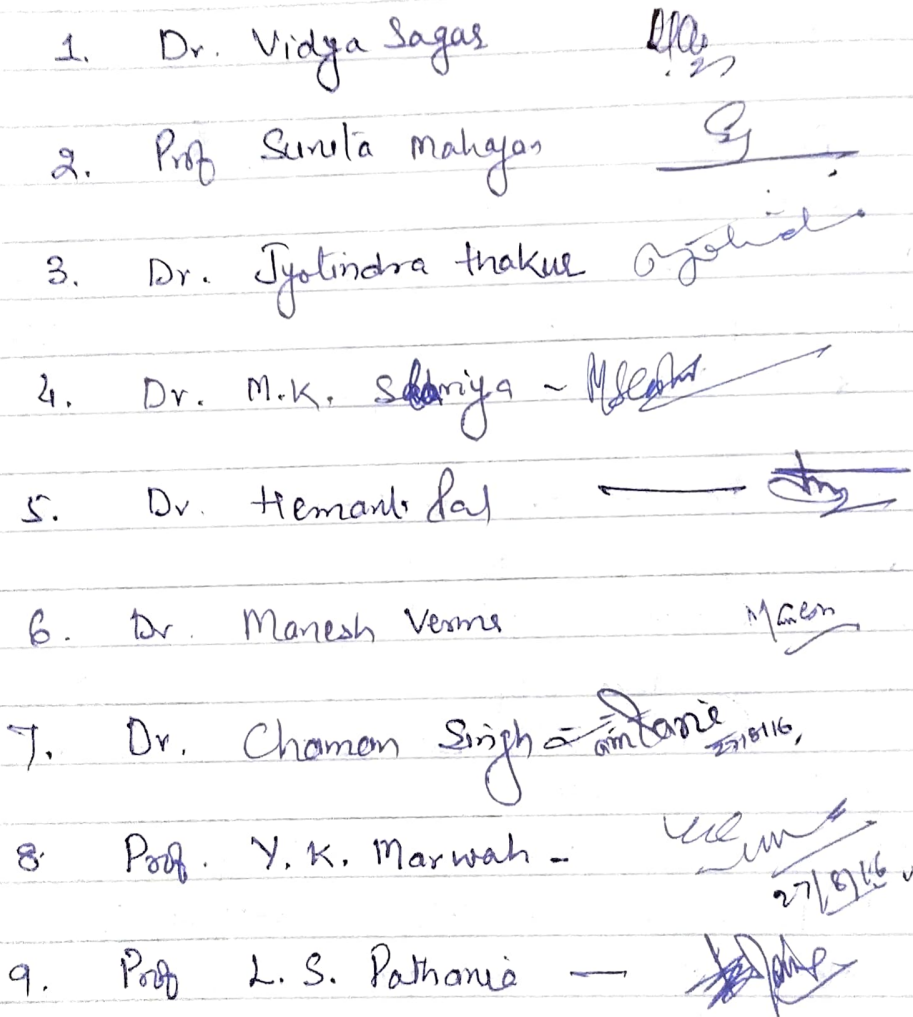 1. Dr. Vidya Sagar
2. Prof Sunita Mahajan
3. Dr. Jyotindra thakur
4. Dr. M.K.
5. Dr. Hemant Pal
6. Dr. Manesh Verma
7. Dr. Chaman Singh 27/8/16,
8. Prof. Y. K. Marwah - 27/8/16
9. Prof L. S. Pathania —